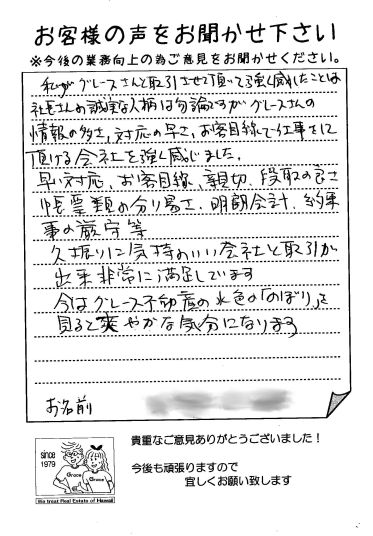 お客様の声をお聞かせ下さい
※今後の業務向上の為ご意見をお聞かせください。
私がグレースさんと取引させて頂いて強く感じたことは
社長さんの誠実な人柄は勿論ですがグレースさんの
情報の多さ，対応の早さ，お客目線で仕事をして
頂ける会社を強く感じました。
早い対応，お客目線，親切，段取の良さ
帳票類の分り易さ，明朗会計，約束
事の厳守等
久振りに気持のいい会社と取引が
出来非常に満足しています
今はグレース不動産の水色の「のぼり」を
見ると爽やかな気分になります
お名前
貴重なご意見ありがとうございました！
since
1979
今後も頑張りますので
宜しくお願い致します
Grace
Grace
We treat Real Estate of Hawaii